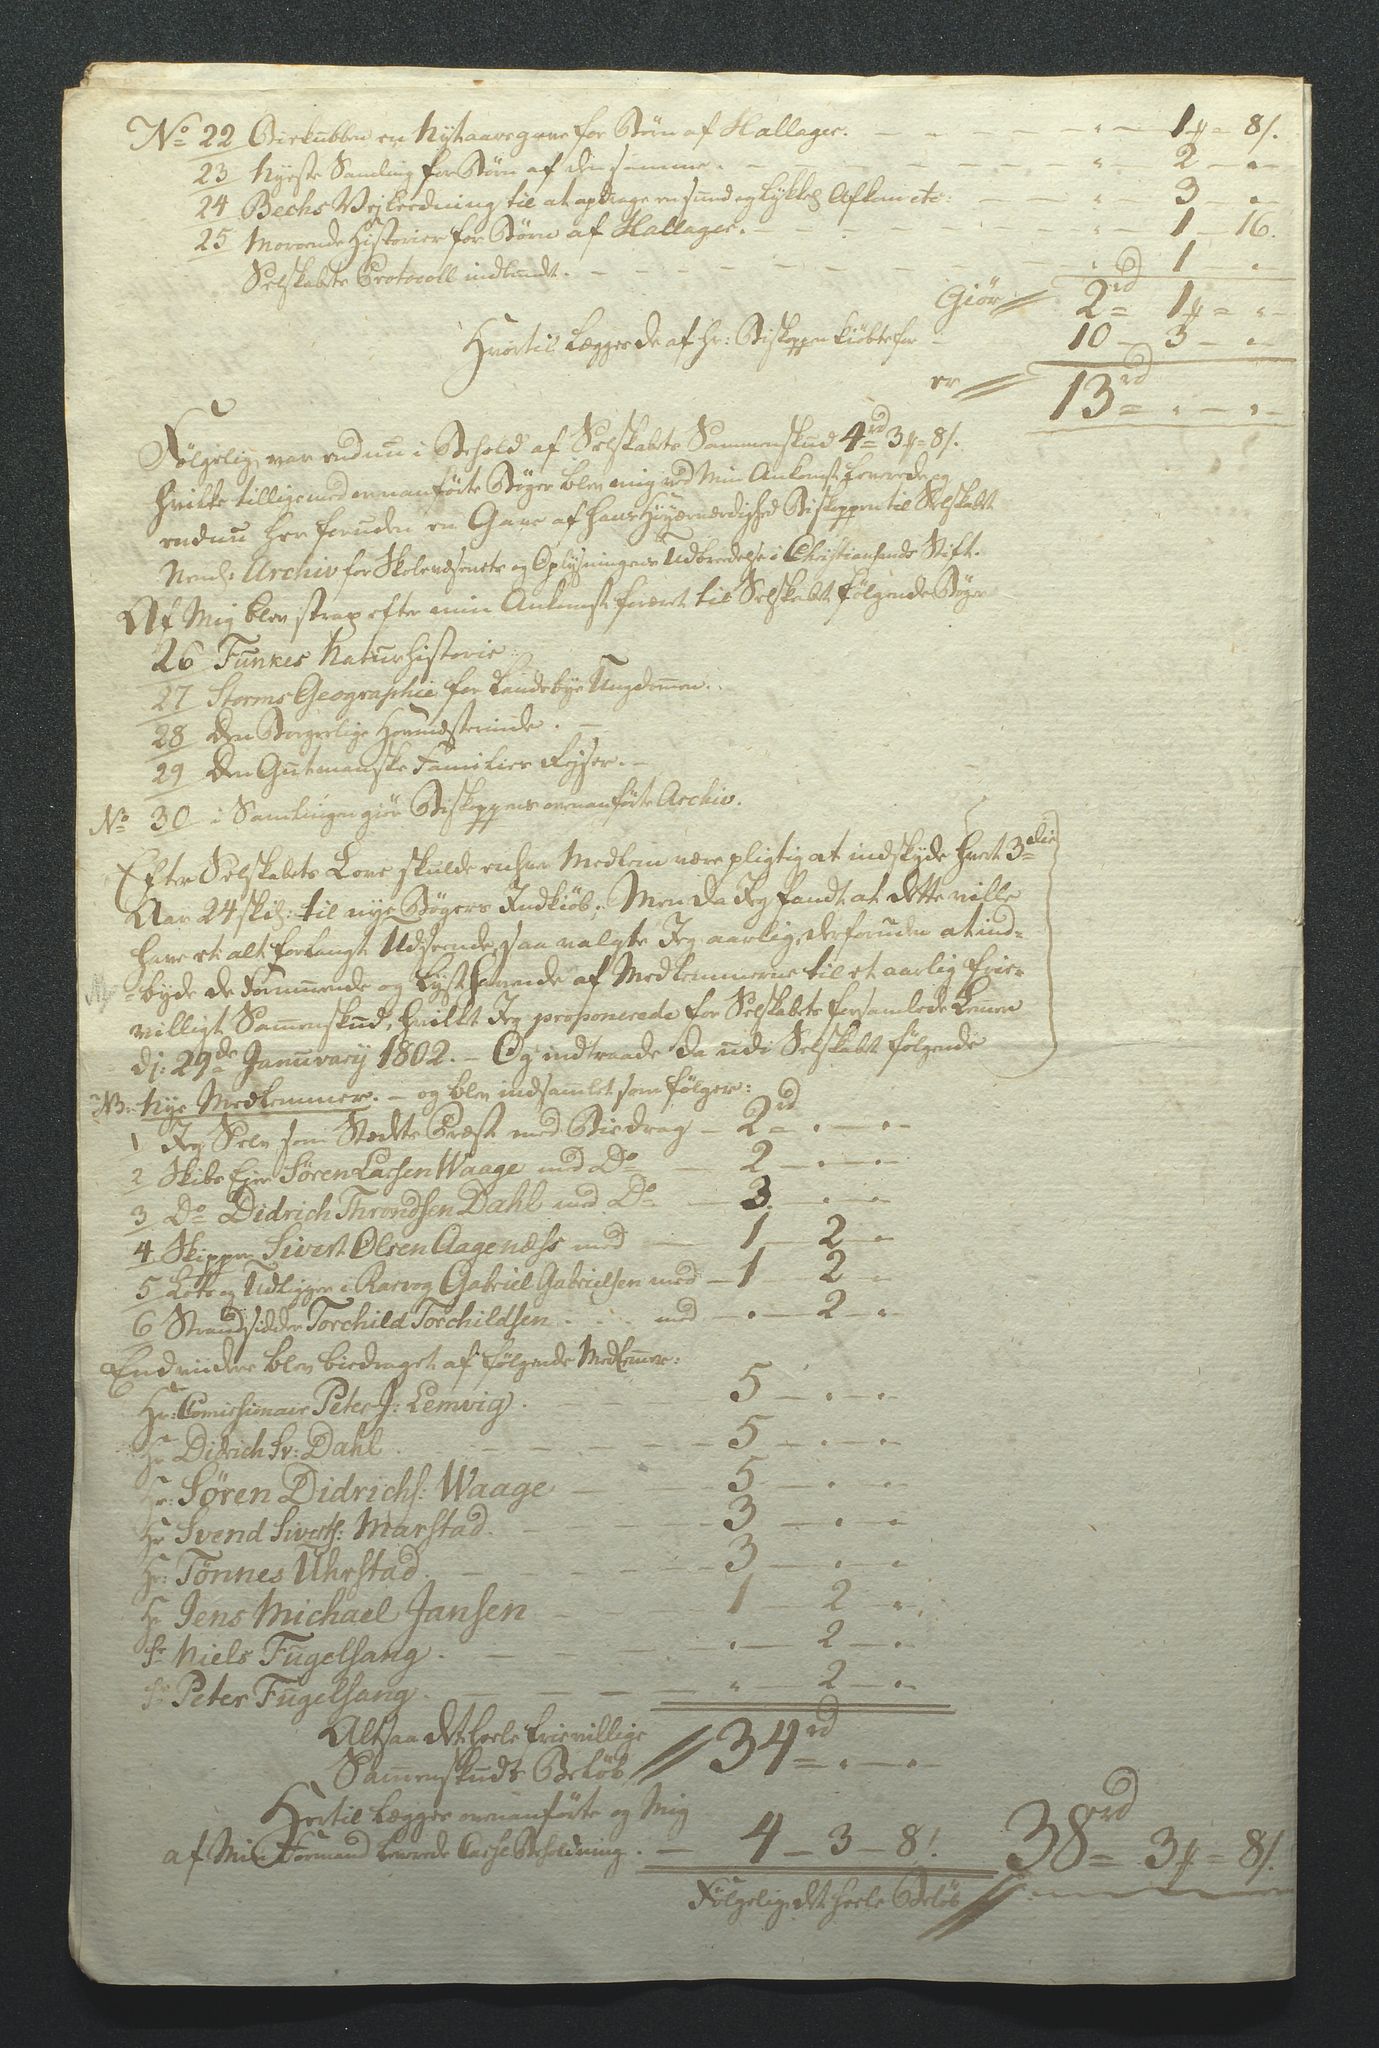 No 22 Birkubben en Nytaarsgave for Børn af Hallager. — 1 ꝑ = 8 s.
23 Nyeste Samling for Børn af den samme. — 2 — " —
24 Bechs Vejledning til at opdrage en sund og lykkel. Afkom etc: — 3 — " —
25 Moroende Historier for Børn af Hallager. — 1 — 16.
Selskabets Protocoll indbundt. — 1 "
Giör // 2 rd = 1 ꝑ = " —
Hvortil lægges de af Hr: Biskoppen kiöbte for — 10 — 3 — " —
er // 13 rd = " — " —
Følgelig var endnu i Behold af Selskabets Sammenskud 4 rd 3 ꝑ = 8 s.
hvilke tilligemed ovenanførte Bøger blev mig ved Min Ankomst leverede og
endnu her foruden en Gave af Hans Høyærværdighed Biskoppen til Selskabet
Nemlig: Archiv for Skolevæsenets og Oplysningens Udbredelse i Christiansands Stift.
Af Mig blev strax efter min Ankomst foræret til Selskabet følgende Bøger
26 Funkes Naturhistorie
27 Storms Geographie for Landsbye Ungdommen.
28 Den Borgerlige Hovmesterinde. —
29 Den Gutmanske Families Rejser. —
No 30 i Samlingen giör Biskoppens ovenanførte Archiv.
Efter Selskabets Love skulde enhver Medlem være pligtig at indskyde hvert 3die
Aar 24 skil: til nye Bøgers Indkiöb; Men da Jeg fandt at dette ville
have et alt for langt Udseende, saa valgte Jeg aarlig derforuden at ind-
byde de Formuende og Lysthavende af Medlemmerne til et aarlig Frie-
villigt Sammenskud, hvilket Jeg proponerede for Selskabets forsamlede Lemmer
d: 29de Januvarij 1802. — Og indtraade da udi Selskabet følgende
No. Nye Medlemmer. — og blev indsamlet som følger:
1 Jeg Selv som Stedets Præst med Bidrag — 2 rd = " — " —
2 Skibs Eyer Søren Larsen Waage med Do — 2 — " — " —
3 Do Didrich Throndsen Dahl med Do — 3. " — " —
4 Skipper Sivert Olsen Aagenæss med — 1 — 2 — "
5 Lots og Udligger i Rasvog Gabriel Gabrielsen med — 1 — 2 "
6 Strandsidder Torchild Torchildsen . . . med — " — 2 — "
Endvidere blev bidraget af følgende Medlemmer:
Hr: Comissionair Peter J: Lemvig. — 5 — " — "
Hr Didrich Sv: Dahl. — 5 — " — " —
Hr: Søren Didrichs: Waage — 5 — " — "
Hr Svend Siverts: Marstad. — 3 — " — "
Hr: Tønnes Uhrstad. — 3 — " — "
Hr Jens Michael Jansen — 1 — 2 — "
Sr Niels Fugelsang. — " — 2 — "
Sr Peter Fugelsang. — " — 2 — " —
Altsaa det heele frievillige
Sammenskuds Beløb // 34 rd = " — " —
Hertil lægges ovenanførte og Mig
af Min Formand leverede Casse Beholdning. — 4 — 3 — 8 s.
Følgelig det heele Beløb // 38 rd = 3 ꝑ = 8 s.